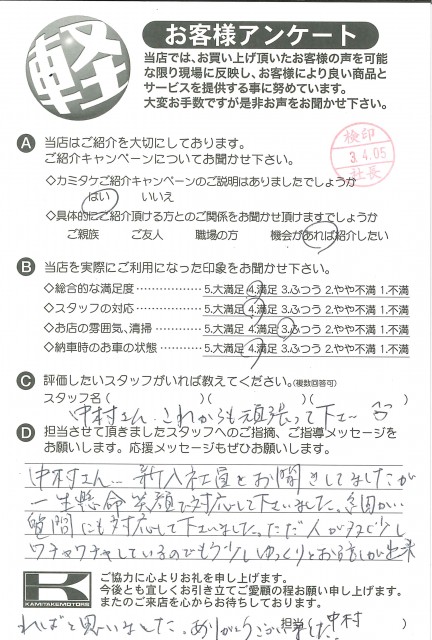 軽
お客様アンケート
当店では、お買い上げ頂いたお客様の声を可能
な限り現場に反映し、お客様により良い商品と
サービスを提供する事に努めています。
大変お手数ですが是非お声をお聞かせ下さい。
検印
3.4.05
社長
A 当店はご紹介を大切にしております。
ご紹介キャンペーンについてお聞かせ下さい。
◇カミタケご紹介キャンペーンのご説明はありましたでしょうか
はい いいえ
◇具体的にご紹介頂ける方とのご関係をお聞かせ頂けますでしょうか
ご親族 ご友人 職場の方 機会があれば紹介したい
B 当店を実際にご利用になった印象をお聞かせ下さい。
◇総合的な満足度 5.大満足 4.満足 3.ふつう 2.やや不満 1.不満
◇スタッフの対応 5.大満足 4.満足 3.ふつう 2.やや不満 1.不満
◇お店の雰囲気、清掃 5.大満足 4.満足 3.ふつう 2.やや不満 1.不満
◇納車時のお車の状態 5.大満足 4.満足 3.ふつう 2.やや不満 1.不満
C 評価したいスタッフがいれば教えてください。(複数回答可)
スタッフ名( )( )( )
中村さん… これからも頑張って下さい
D 担当させて頂きましたスタッフへのご指摘、ご指導メッセージを
お願いします。応援メッセージもぜひお願いします。
中村さん… 新入社員とお聞きしてましたが
一生懸命笑顔で対応して下さいました。細かい
質問にも対応して下さいました。ただ人が多くて少し
ワチャワチャしているのでもう少しゆっくりとお話しが出来
K
KAMITAKEMOTORS
ご協力に心よりお礼を申し上げます。
今後とも宜しくお引き立てご愛顧の程お願い申し上げます。
またのご来店を心からお待ちしております。
ればと思いました。ありがとうございました! 担当( 中村 )